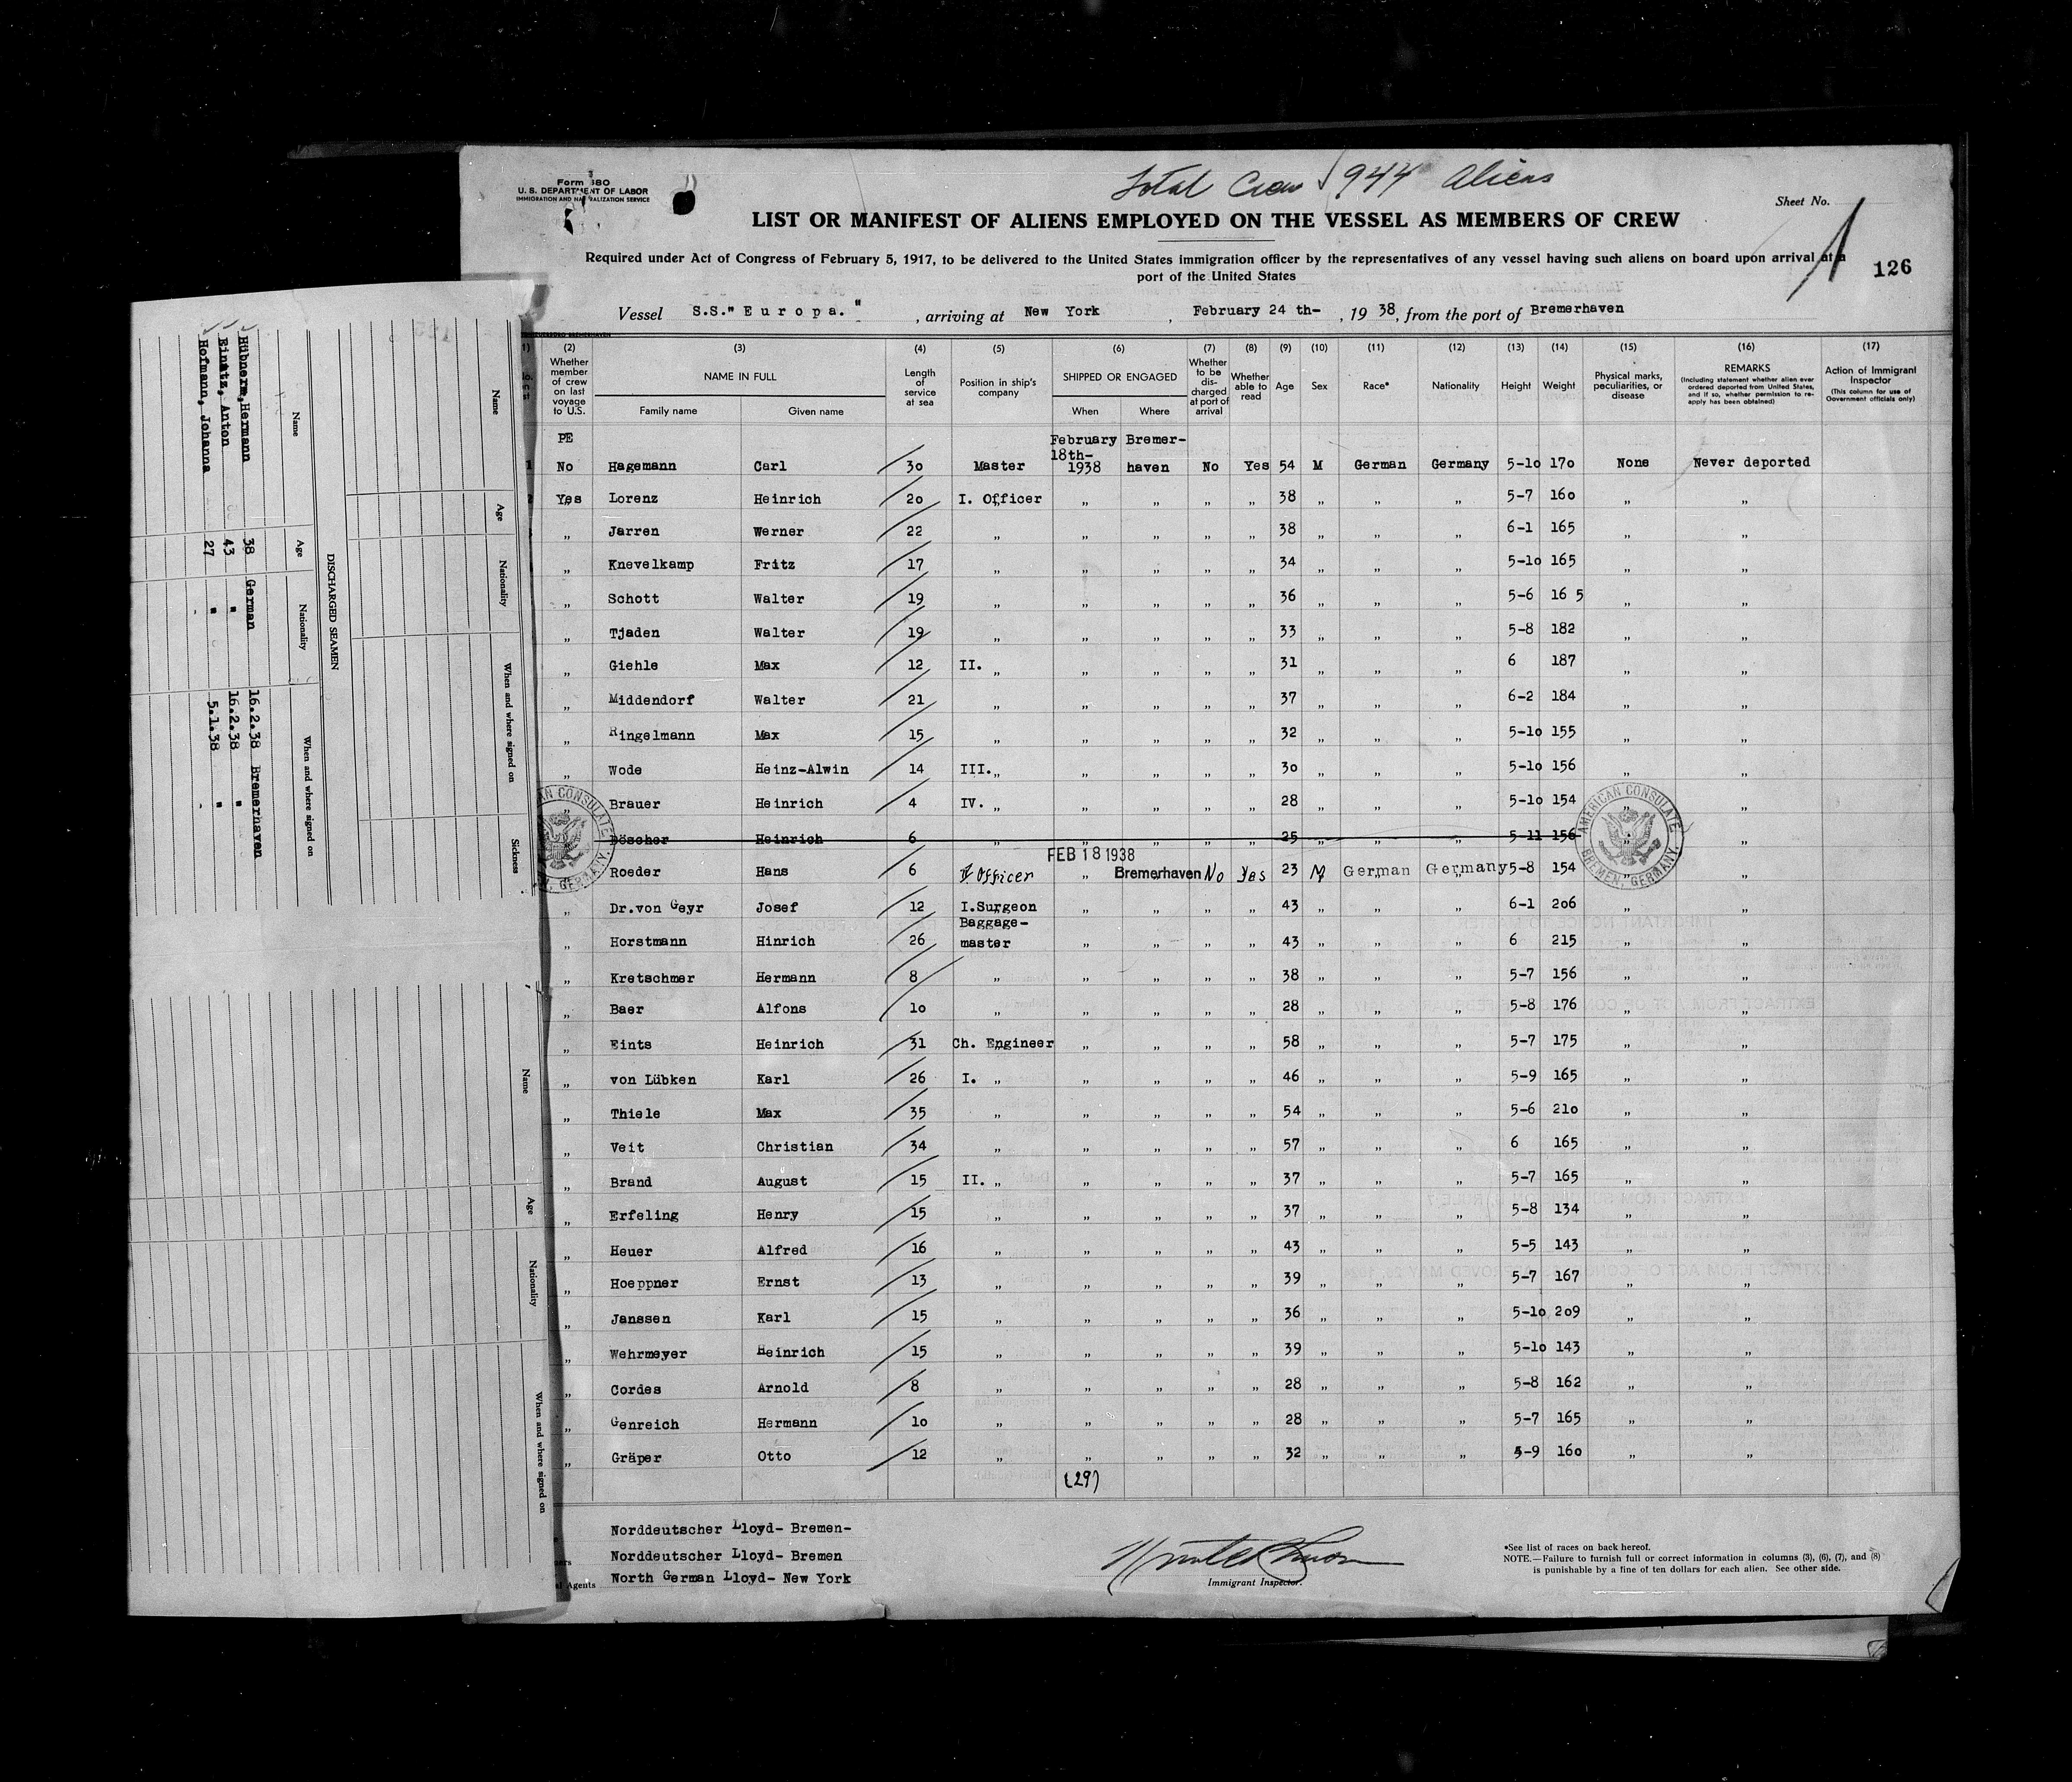 Total Crew 944 Aliens
Form 680
U. S. DEPARTMENT OF LABOR
IMMIGRATION AND NATURALIZATION SERVICE
Sheet No.
LIST OR MANIFEST OF ALIENS EMPLOYED ON THE VESSEL AS MEMBERS OF CREW
Required under Act of Congress of February 5, 1917, to be delivered to the United States immigration officer by the representatives of any vessel having such aliens on board upon arrival at a
port of the United States
126
Vessel S.S." E u r o p a. " , arriving at New York , February 24 th- , 19 38, from the port of Bremerhaven
(1) (2) (3) (4) (5) (6) (7) (8) (9) (10) (11) (12) (13) (14) (15) (16) (17)
Whether member of crew on last voyage to U.S. NAME IN FULL Family name Given name Length of service at sea Position in ship's company SHIPPED OR ENGAGED When Where Whether to be discharged at port of arrival Whether able to read Age Sex Race* Nationality Height Weight Physical marks, peculiarities, or disease REMARKS (Including statement whether alien ever ordered deported from United States, and if so, whether permission to re-apply has been obtained) Action of Immigrant Inspector (This column for use of Government officials only)
PE February 18th- Bremer-
1 No Hagemann Carl 30 Master 1938 haven No Yes 54 M German Germany 5-10 170 None Never deported
Yes Lorenz Heinrich 20 I. Officer „ „ „ „ 38 „ „ „ 5-7 160 „ „
„ Jarren Werner 22 „ „ „ „ „ 38 „ „ „ 6-1 165 „ „
„ Knevelkamp Fritz 17 „ „ „ „ „ 34 „ „ „ 5-10 165 „ „
„ Schott Walter 19 „ „ „ „ „ 36 „ „ „ 5-6 16 5 „ „
„ Tjaden Walter 19 „ „ „ „ „ 33 „ „ „ 5-8 182 „ „
„ Giehle Max 12 II. „ „ „ „ „ 31 „ „ „ 6 187 „ „
„ Middendorf Walter 21 „ „ „ „ „ 37 „ „ „ 6-2 184 „ „
„ Ringelmann Max 15 „ „ „ „ „ 32 „ „ „ 5-10 155 „ „
„ Wode Heinz-Alwin 14 III.„ „ „ „ „ 30 „ „ „ 5-10 156 „ „
„ Brauer Heinrich 4 IV. „ „ „ „ „ 28 „ „ „ 5-10 154 „ „
„ Döscher Heinrich 6 „ „ „ „ „ 25 „ „ „ 5-11 156 „ „
FEB 18 1938
„ Roeder Hans 6 Officer „ Bremerhaven No Yes 23 M German Germany 5-8 154 „ „
„ Dr.von Geyr Josef 12 I.Surgeon „ „ „ „ 43 „ „ „ 6-1 206 „ „
„ Horstmann Hinrich 26 Baggage-master „ „ „ „ 43 „ „ „ 6 215 „ „
„ Kretschmer Hermann 8 „ „ „ „ „ 38 „ „ „ 5-7 156 „ „
„ Baer Alfons 10 „ „ „ „ „ 28 „ „ „ 5-8 176 „ „
„ Eints Heinrich 31 Ch. Engineer „ „ „ „ 58 „ „ „ 5-7 175 „ „
„ von Lübken Karl 26 I. „ „ „ „ „ 46 „ „ „ 5-9 165 „ „
„ Thiele Max 35 „ „ „ „ „ 54 „ „ „ 5-6 210 „ „
„ Veit Christian 34 „ „ „ „ „ 57 „ „ „ 6 165 „ „
„ Brand August 15 II. „ „ „ „ „ 37 „ „ „ 5-7 165 „ „
„ Erfeling Henry 15 „ „ „ „ „ 37 „ „ „ 5-8 134 „ „
„ Heuer Alfred 16 „ „ „ „ „ 43 „ „ „ 5-5 143 „ „
„ Hoeppner Ernst 13 „ „ „ „ „ 39 „ „ „ 5-7 167 „ „
„ Janssen Karl 15 „ „ „ „ „ 36 „ „ „ 5-10 209 „ „
„ Wehrmeyer Heinrich 15 „ „ „ „ „ 39 „ „ „ 5-10 143 „ „
„ Cordes Arnold 8 „ „ „ „ „ 28 „ „ „ 5-8 162 „ „
„ Genreich Hermann 10 „ „ „ „ „ 28 „ „ „ 5-7 165 „ „
„ Gräper Otto 12 „ „ „ „ „ 32 „ „ „ 5-9 160 „ „
(29)
AMERICAN CONSULATE
BREMEN, GERMANY.
Norddeutscher Lloyd- Bremen-
Norddeutscher Lloyd- Bremen
Agents North German Lloyd- New York
Immigrant Inspector.
*See list of races on back hereof.
NOTE.—Failure to furnish full or correct information in columns (3), (6), (7), and (8)
is punishable by a fine of ten dollars for each alien. See other side.
Name Age Nationality When and where signed on Sickness
DISCHARGED SEAMEN
Name Age Nationality When and where signed on
Hübnerm,Hermann 38 German 16.2.38 Bremerhaven
Einatz, Anton 43 " 16.2.38 "
Hofmann, Johanna 27 " 5.1.38 "
Name Age Nationality When and where signed on